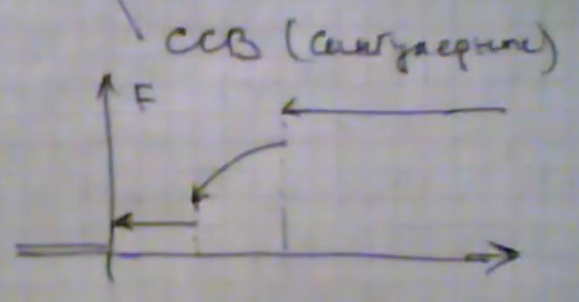 ССВ (сингулярные)
F